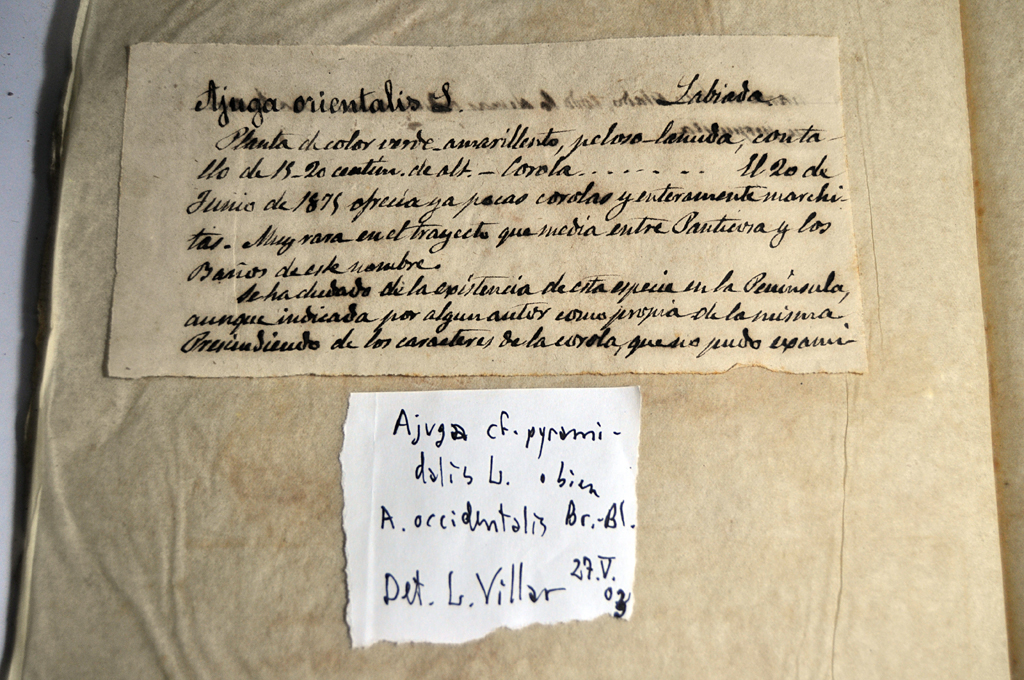 Ajuga orientalis L. Labiada
Planta de color verde-amarillento, peloso-lanuda, con ta-
llo de 15-20 centim. de alt. - Corola . . . . . . . El 20 de
Junio de 1875 ofrecia ya pocas corolas y enteramente marchi-
tas. Muy rara en el trayecto que media entre Panticosa y los
Baños de este nombre.
Se ha dudado de la existencia de esta especie en la Península,
aunque indicada por algun autor como propia de la misma
Prescindiendo de los caracteres de la corola, que no pudo exami-
Ajuga cf. pyrami-
dalis L. o bien
A. occidentalis Br.-Bl.
Det. L. Villar 27.V.
03